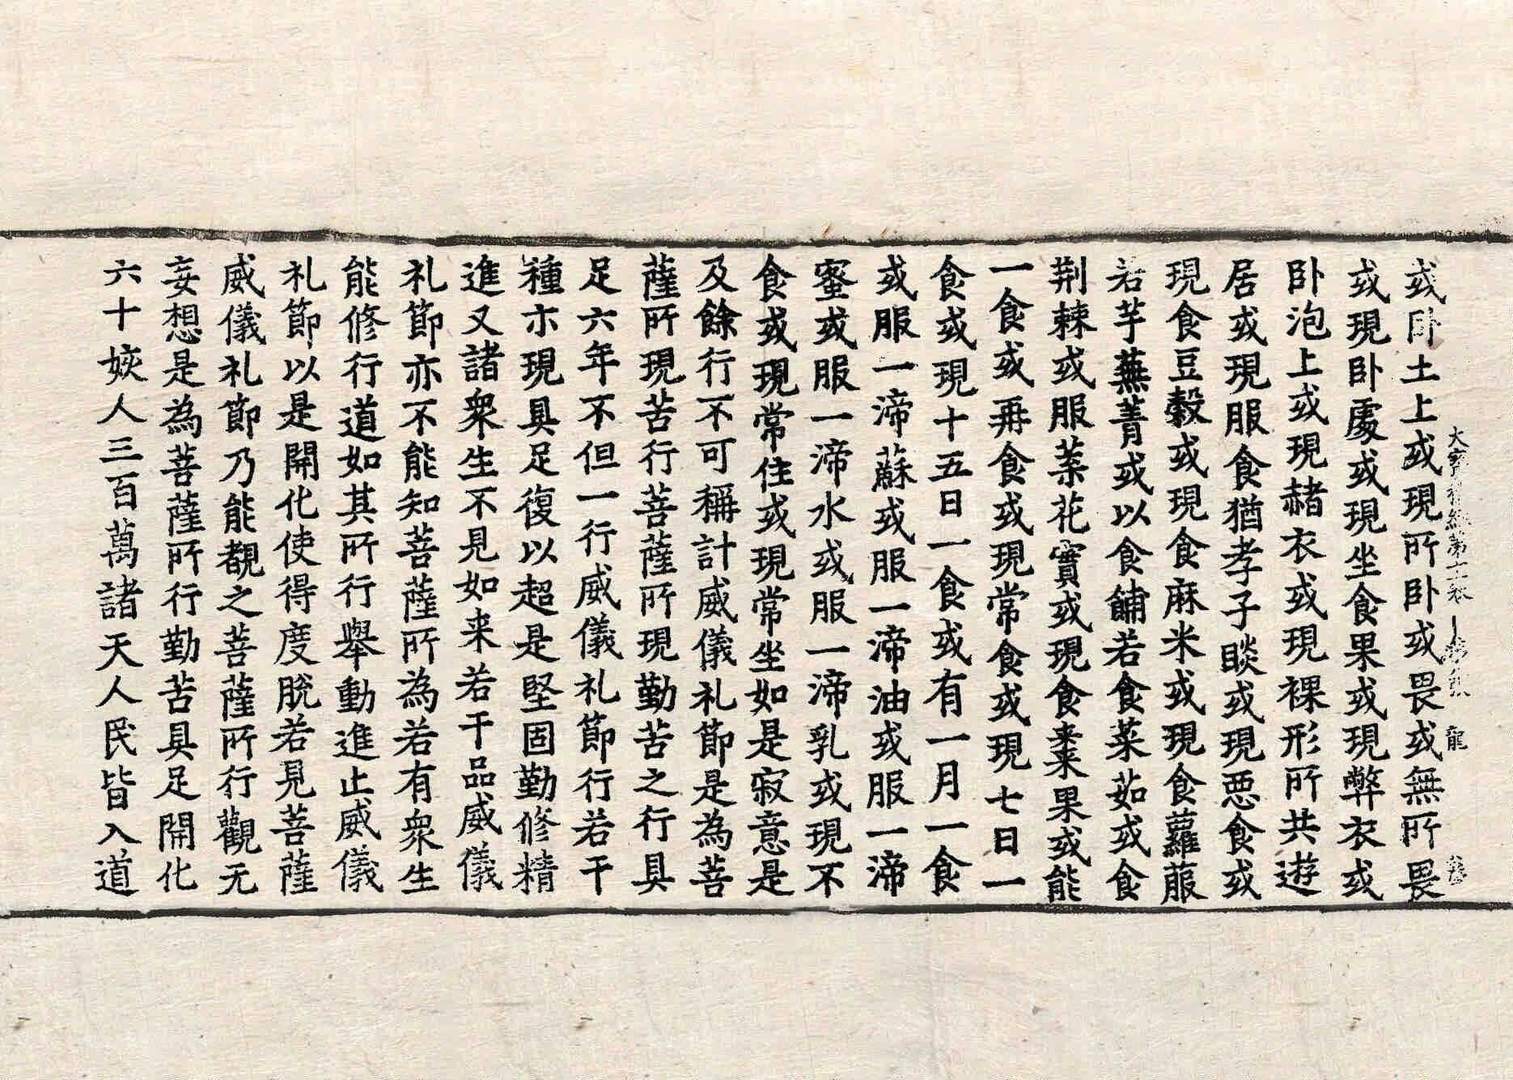 或卧土上或現所卧或畏或無所畏
或現卧處或現坐食果或現弊衣或
卧泡上或現赭衣或現裸形所共遊
居或現服食猶孝子睒或現恶食或
現食豆穀或現食麻米或現食蘿蔔
若芋蕪菁或以食餔若食菜茹或食
荆棘或服葉花實或現食棗果或能
一食或再食或現常食或現七日一
食或現十五日一食或有一月一食
或服一渧蘇或服一渧油或服一渧
蜜或服一渧水或服一渧乳或現不
食或現常住或現常坐如是寂意是
及餘行不可稱計威儀礼節是為菩
薩所現苦行菩薩所現勤苦之行具
足六年不但一行威儀礼節行若干
種亦現具足復以超是堅固勤修精
進又諸衆生不見如来若干品威儀
礼節亦不能知菩薩所為若有衆生
能修行道如其所行舉動進止威儀
礼節以是開化使得度脫若見菩薩
威儀礼節乃能覩之菩薩所行觀无
妄想是為菩薩所行勤苦具足開化
六十姟人三百萬諸天人民皆入道
大寶積經第十
龍